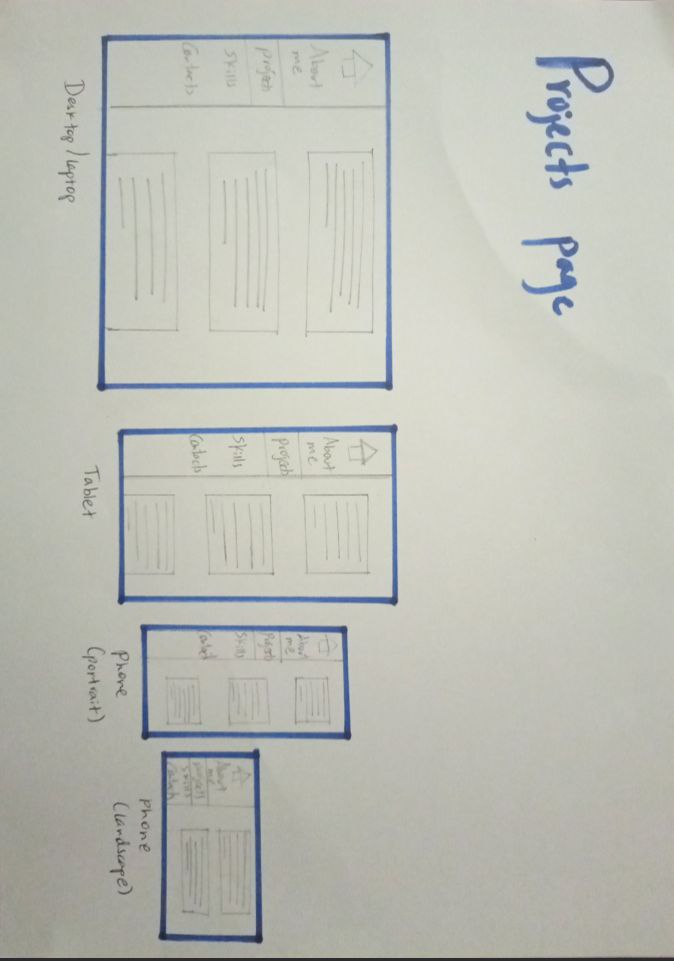 Projects page
About
me
projects
skills
Contacts
Desktop/laptop
About
me
projects
skills
Contacts
Tablet
About
me
Projects
skills
Contact
Phone
(portrait)
About
me
projects
skills
Contacts
phone
(landscape)